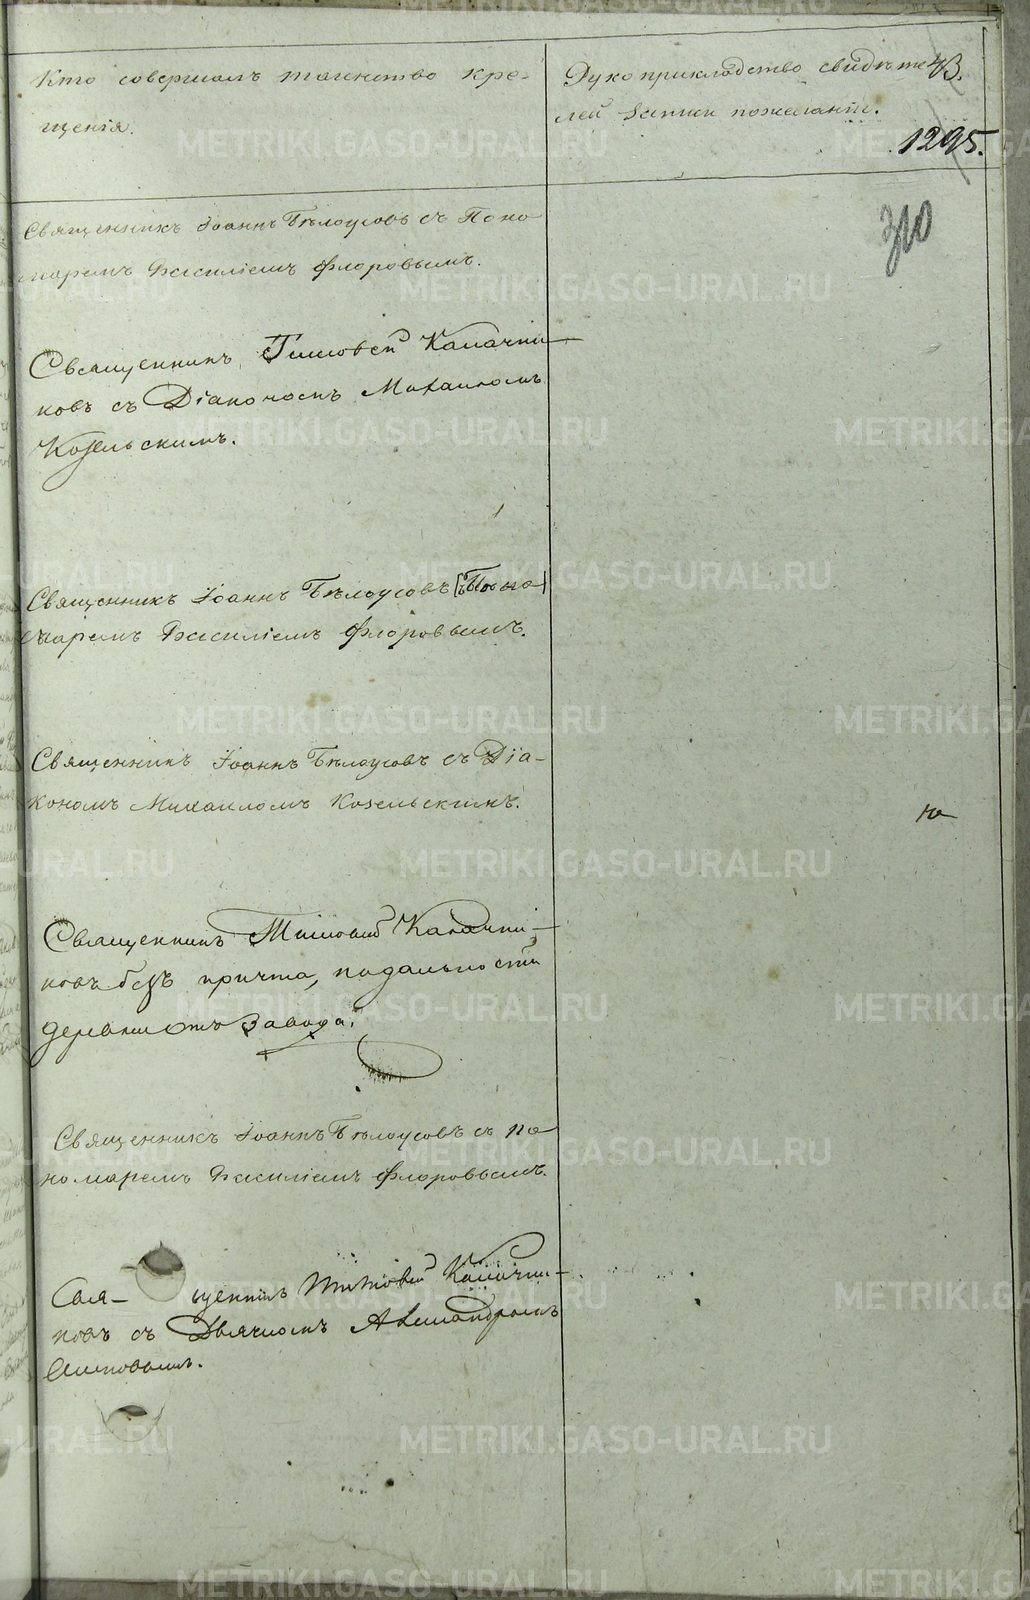 Кто совершалъ таинство кре-
щенія.
Рукоприкладство свидѣте
лей записи пожеланію.
43.
1295.
310
Священникъ Іоаннъ Бѣлоусовъ съ Поно
маремъ Василіемъ Флоровымъ.
Священникъ Тимофей Калачни-
ковъ съ Діакономъ Михаиломъ
Козельскимъ.
Священникъ Іоаннъ Бѣлоусовъ съ Поно
маремъ Василіемъ Флоровымъ.
Священникъ Іоаннъ Бѣлоусовъ съ Діа-
кономъ Михаиломъ Козельскимъ.
Священникъ Тимофей Калачни-
ковъ безъ причта, подальности
деревни отъ завода.
Священникъ Іоаннъ Бѣлоусовъ съ по
номаремъ Василіемъ Флоровымъ.
Свя- щенникъ Тимофей Калачни-
ковъ съ Дьячкомъ Александромъ
METRIKI.GASO-URAL.RU